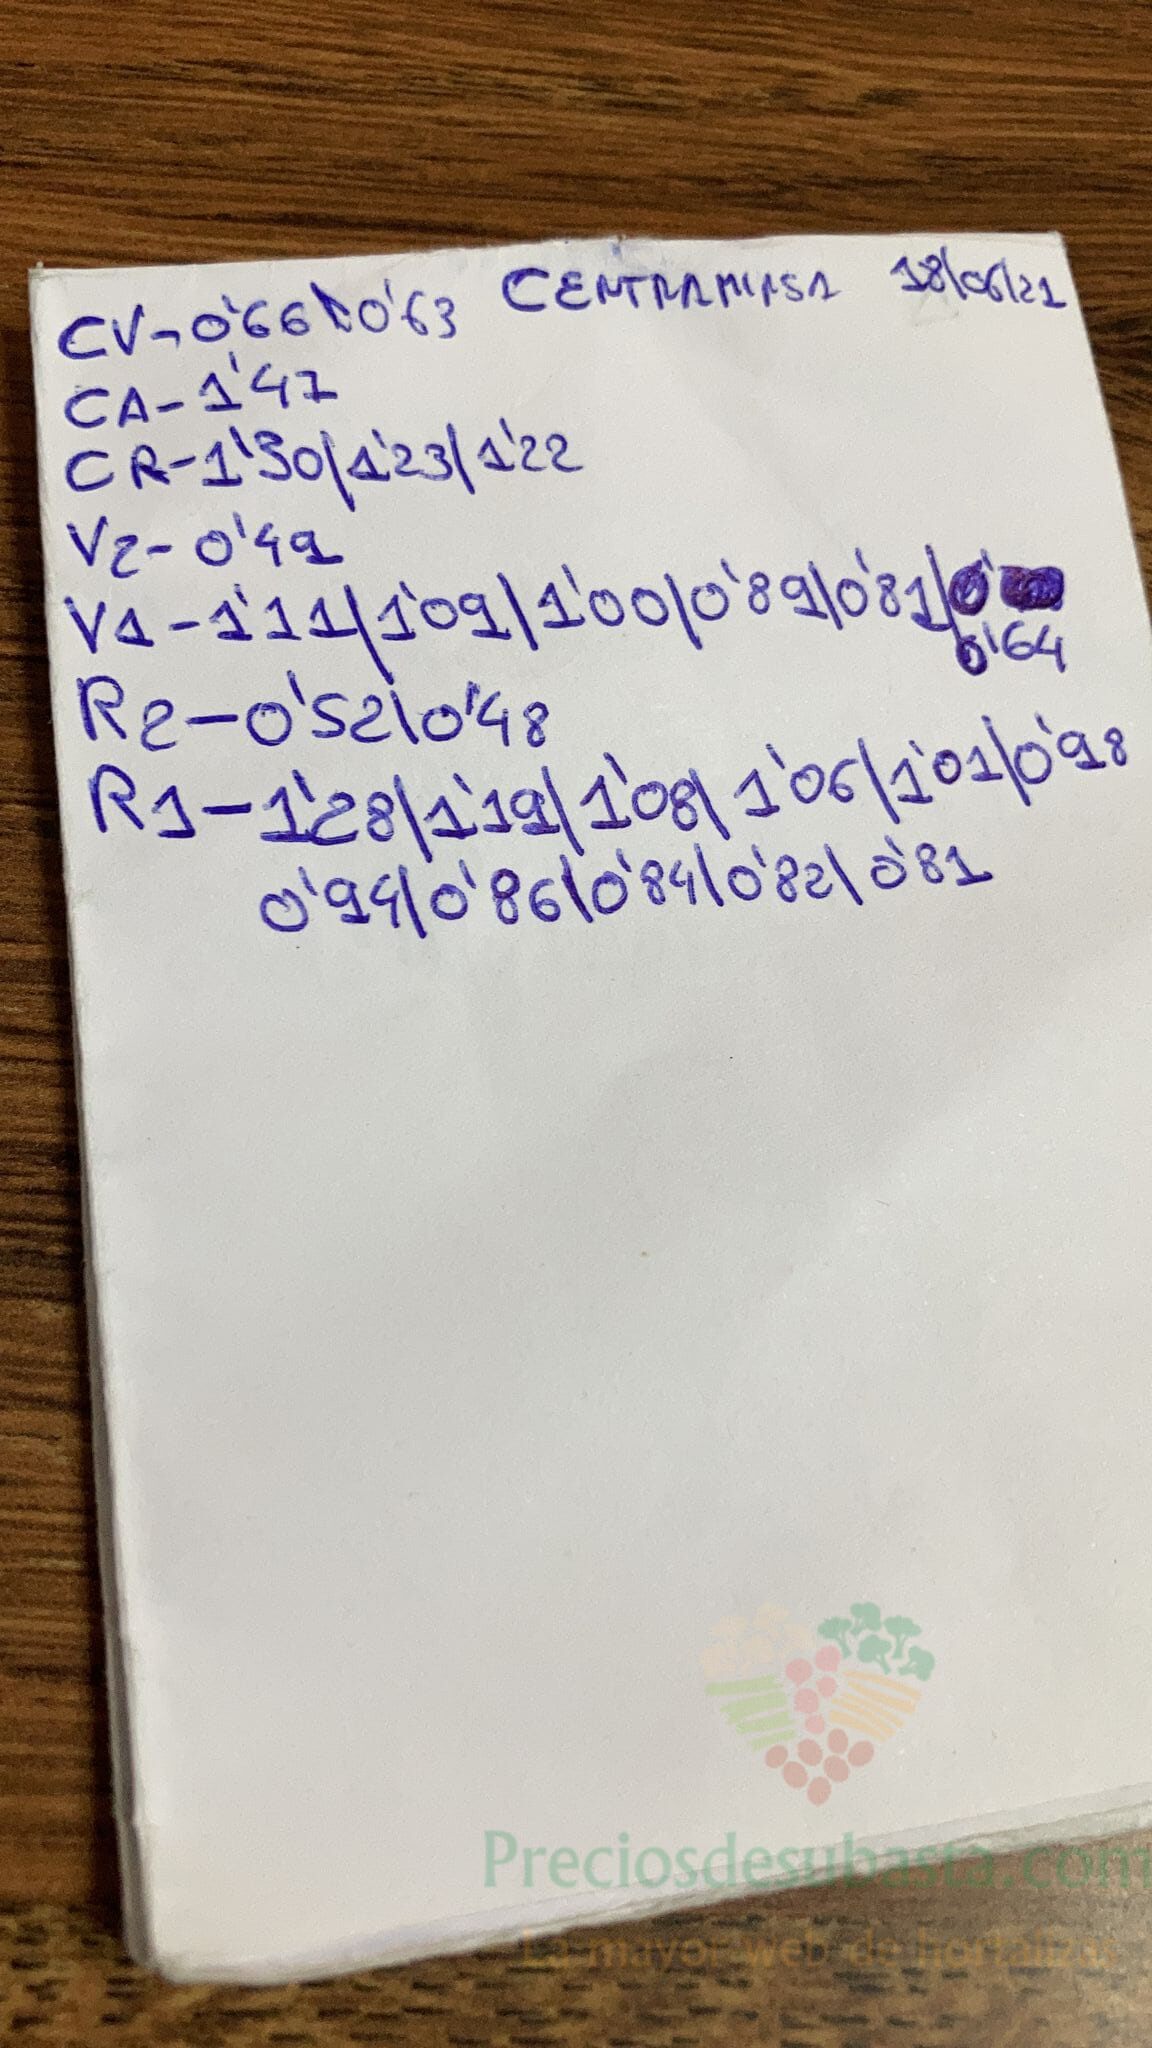 CENTRAMIRSA 18/06/21
CV-0'66\0'63
CA-1'47
CR-1'30/1'23/1'22
V2-0'49
V1-1'11/1'09/1'00/0'89/0'81/0'
0'64
R2-0'52\0'48
R1-1'28/1'19/1'08/1'06/1'01/0'98
0'94/0'86/0'84/0'82/0'81
Preciosdesubasta.com
La mayor web de hortalizas